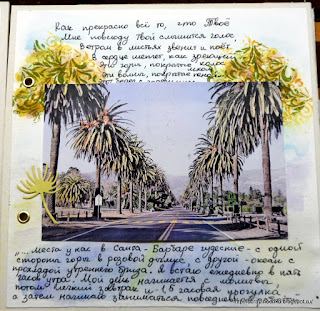 Как прекрасно всё то, что Твоё
Мне повсюду Твой слышится голос,
Ветром в листьях звенит и поёт
В сердце шепчет, как зреющий
колос
Эти горы, покрытые
Эти волны, покрытые пеной
"... Места у нас в Санта-Барбаре чудесные - с одной
стороны горы в розовой дымке с другой - океан с
прохладой утреннего бриза. Я встаю ежедневно в пять
часов утра. Мой день начинается с молитвы,
потом легкий завтрак и 1,5 часовая прогулка -
а затем начинаю заниматься повседневными